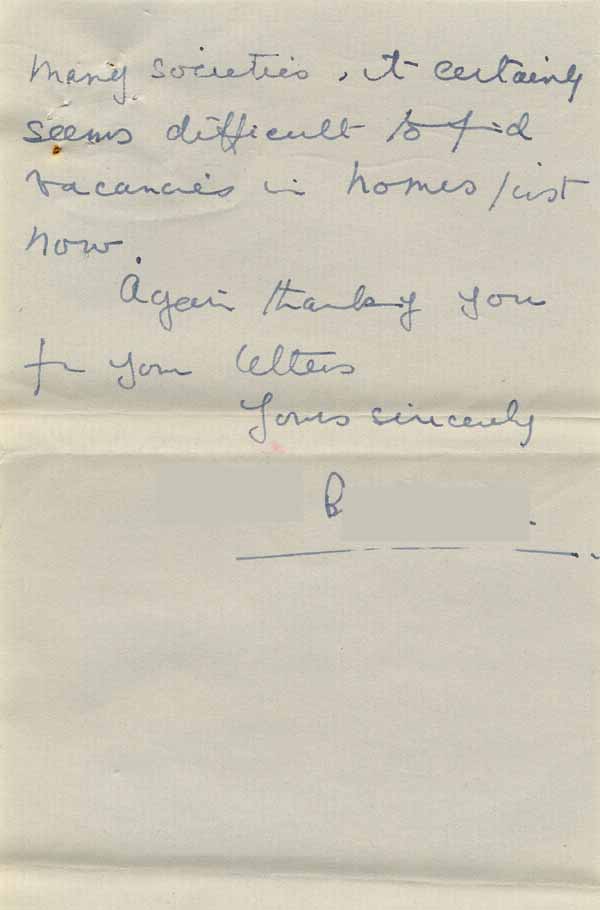 many societies, it certainly
seems difficult to find
vacancies in homes just
now.
Again thanking you
for your letters
Yours sincerely
B